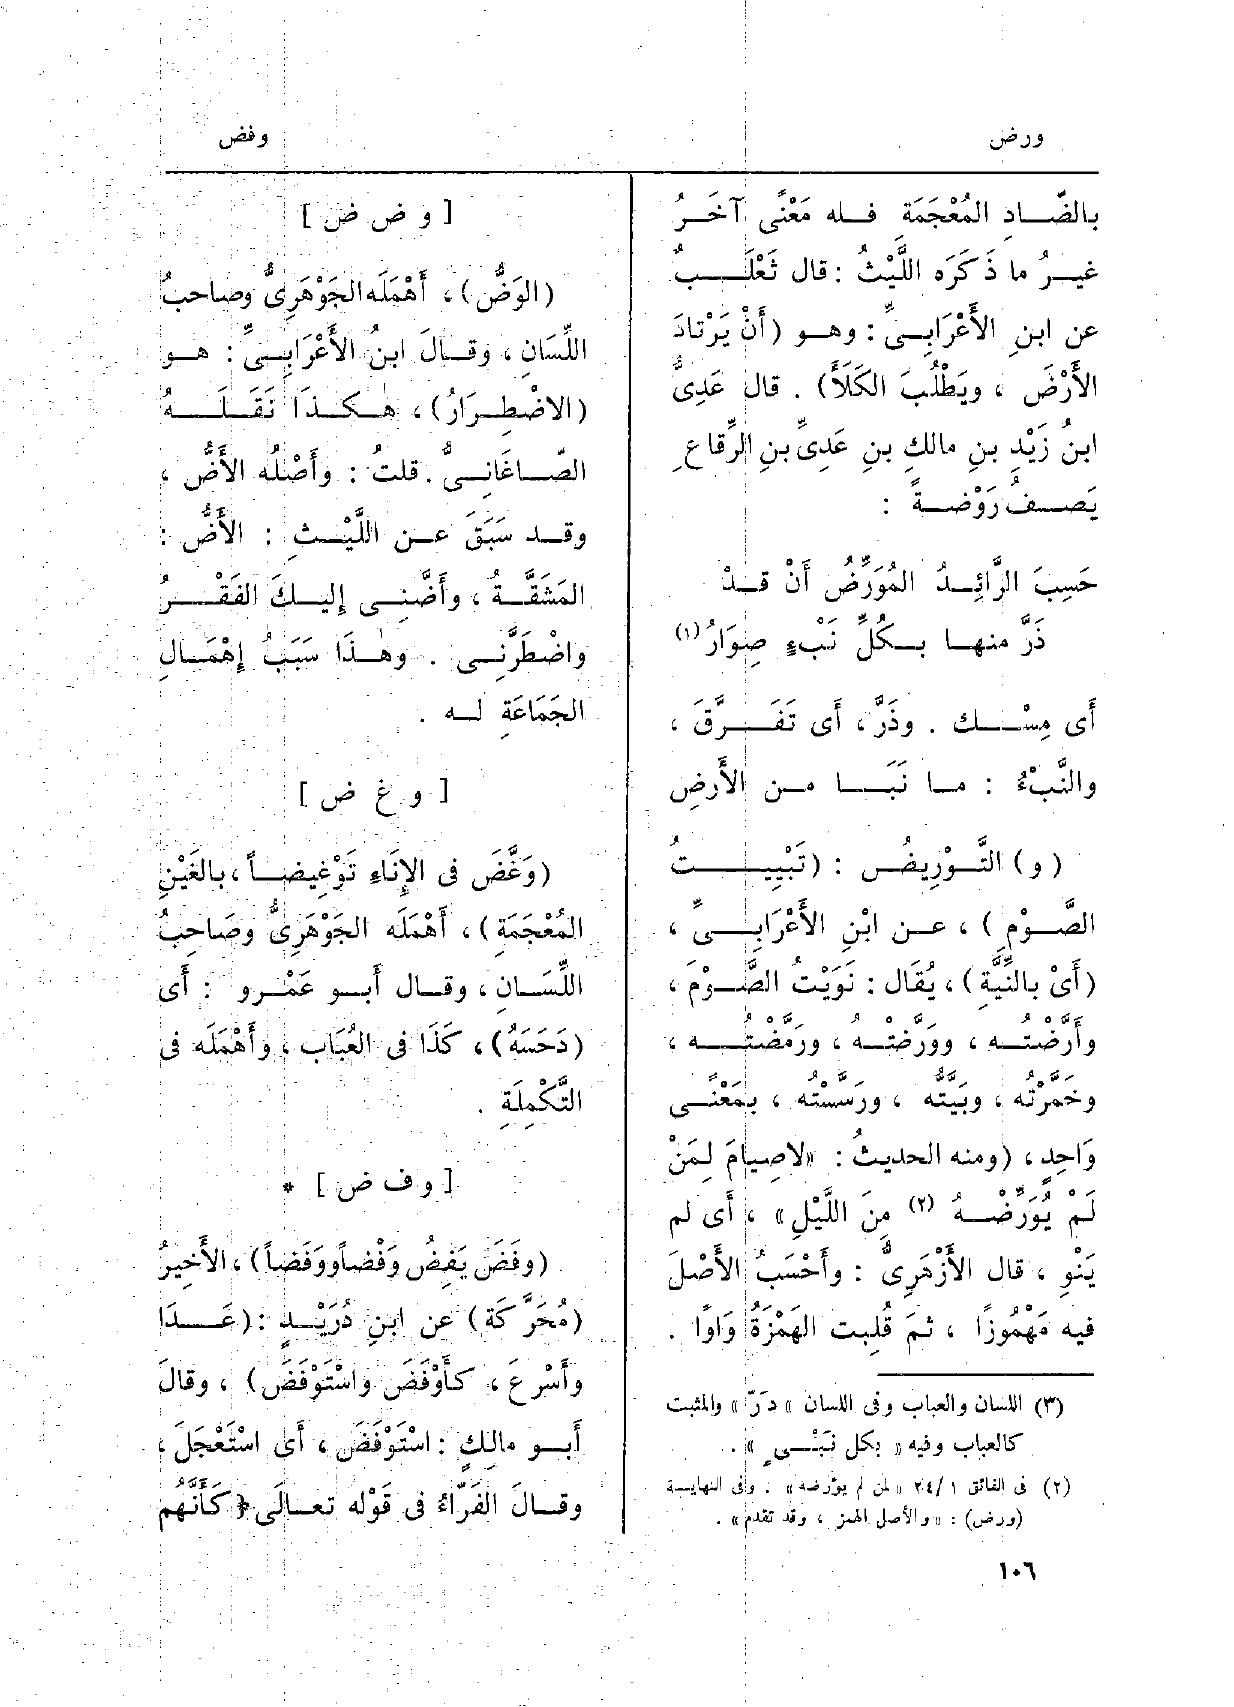 ورض
وفض
بالضَّاد المُعْجَمَة فله مَعْنًى آخَرُ
غيرُ ما ذَكَرَه اللَّيْثُ : قال ثَعْلَبٌ
عن ابنِ الأَعْرَابِىِّ : وهو (أَنْ يَرْتادَ
الأَرْضَ ، ويَطْلُبَ الكَلَأَ) . قال عَدِىُّ
ابنُ زَيْدِ بنِ مالكِ بنِ عَدِىِّ بنِ الرِّقاعِ
يَصفُ رَوْضةً :
حَسِبَ الرَّائِدُ المُوَرِّضُ أَنْ قدْ
ذَرَّ منها بكُلِّ نَبْءٍ صِوَارُ (١)
أَى مِسْك . وذَرَّ ، أَى تَفَرَّقَ ،
والنَّبْءُ : ما نَبَا من الأَرضِ
(و) التَّوْرِيضُ : (تَبْيِيتُ
الصَّوْمِ) ، عن ابْنِ الأَعْرَابِىِّ ،
(أَىْ بالنِّيَّةِ) ، يُقَال : نَوَيْتُ الصَّوْمَ ،
وأَرَّضْتُه ، ووَرَّضْتُه ، ورَمَّضْتُه ،
وخَمَّرْتُه ، وبَيَّتُّه ، ورَسَّسْتُه ، بمَعْنًى
وَاحِدٍ ، (ومنه الحديثُ : «لاصِيامَ لِمَنْ
لَمْ يُوَرِّضْهُ (٢) مِنَ اللَّيْلِ» ، أَى لم
يَنْوِ ، قال الأَزْهَرِىُّ : وأَحْسَبُ الأَصْلَ
فيه مَهْمُوزًا ، ثمَ قُلِبت الهَمْزَةُ وَاوًا .
(٣) اللسان والعباب وفى اللسان «دَرّ» والمثبت
كالعباب وفيه «بكل نَبْىٍ» .
(٢) فى الفائق ١ /٢٤ «لمن لم يؤرضه» . وفى النهاية
(ورض) : «والأصل الهمز ، وقد تقدم» .
١٠٦
[ و ض ض ]
(الوَضُّ) ، أَهْمَلَه الجَوْهَرِىُّ وصاحبُ
اللِّسَانِ ، وقالَ ابنُ الأَعْرَابِىِّ : هو
(الاضْطِرَارُ) ، هٰكذَا نَقَلَهُ
الصَّاغَانِىُّ . قلتُ : وأَصْلُه الأَضُّ ،
وقد سَبَقَ عن اللَّيْثِ : الأَضُّ :
المَشَقَّةُ ، وأَضَّنِى إِليكَ الفَقْرُ
واضْطَرَّنِى . وهٰذَا سَبَبُ إِهْمَالِ
الجَمَاعَةِ له .
[ و غ ض ]
(وَغَّضَ فى الإِنَاءِ تَوْغِيضاً ، بالغَيْنِ
المُعْجَمَة) ، أَهْمَلَه الجَوْهَرِىُّ وصَاحِبُ
اللِّسَانِ ، وقال أَبو عَمْرو : أَى
(دَحَسَهُ) ، كَذَا فى العُبَاب ، وأَهْمَلَه فى
التَّكْمِلَةِ .
[ و ف ض ] *
(وفَضَ يَفِضُ وَفْضاً ووَفَضاً) ، الأَخِيرُ
(مُحَرَّكَة) عن ابنِ دُرَيْدٍ : (عَدَا
وأَسْرَعَ ، كأَوْفَضَ واسْتَوْفَضَ) ، وقالَ
أَبو مالِكٍ : اسْتَوْفَضَ ، أَى اسْتَعْجَلَ ،
وقالَ الفَرَّاءُ فى قَوْله تعالَى ﴿كَأَنَّهُم